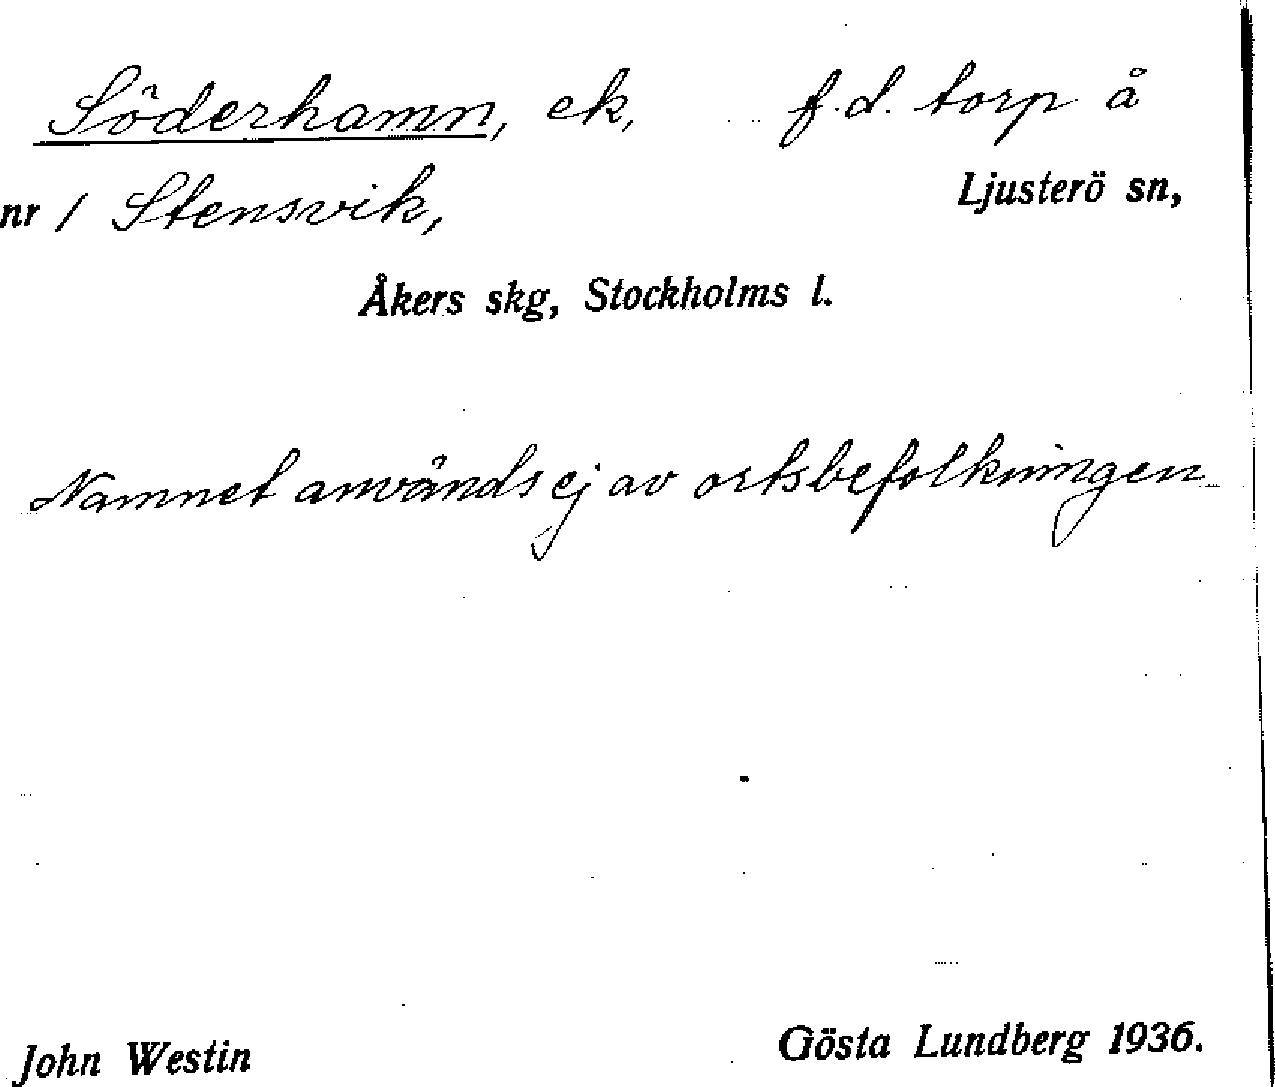 Söderhamn, ek, f.d. torp å
nr 1 Stensvik, Ljusterö sn,
Åkers skg, Stockholms l.
Namnet användes ej av ortsbefolkningen
John Westin Gösta Lundberg 1936.